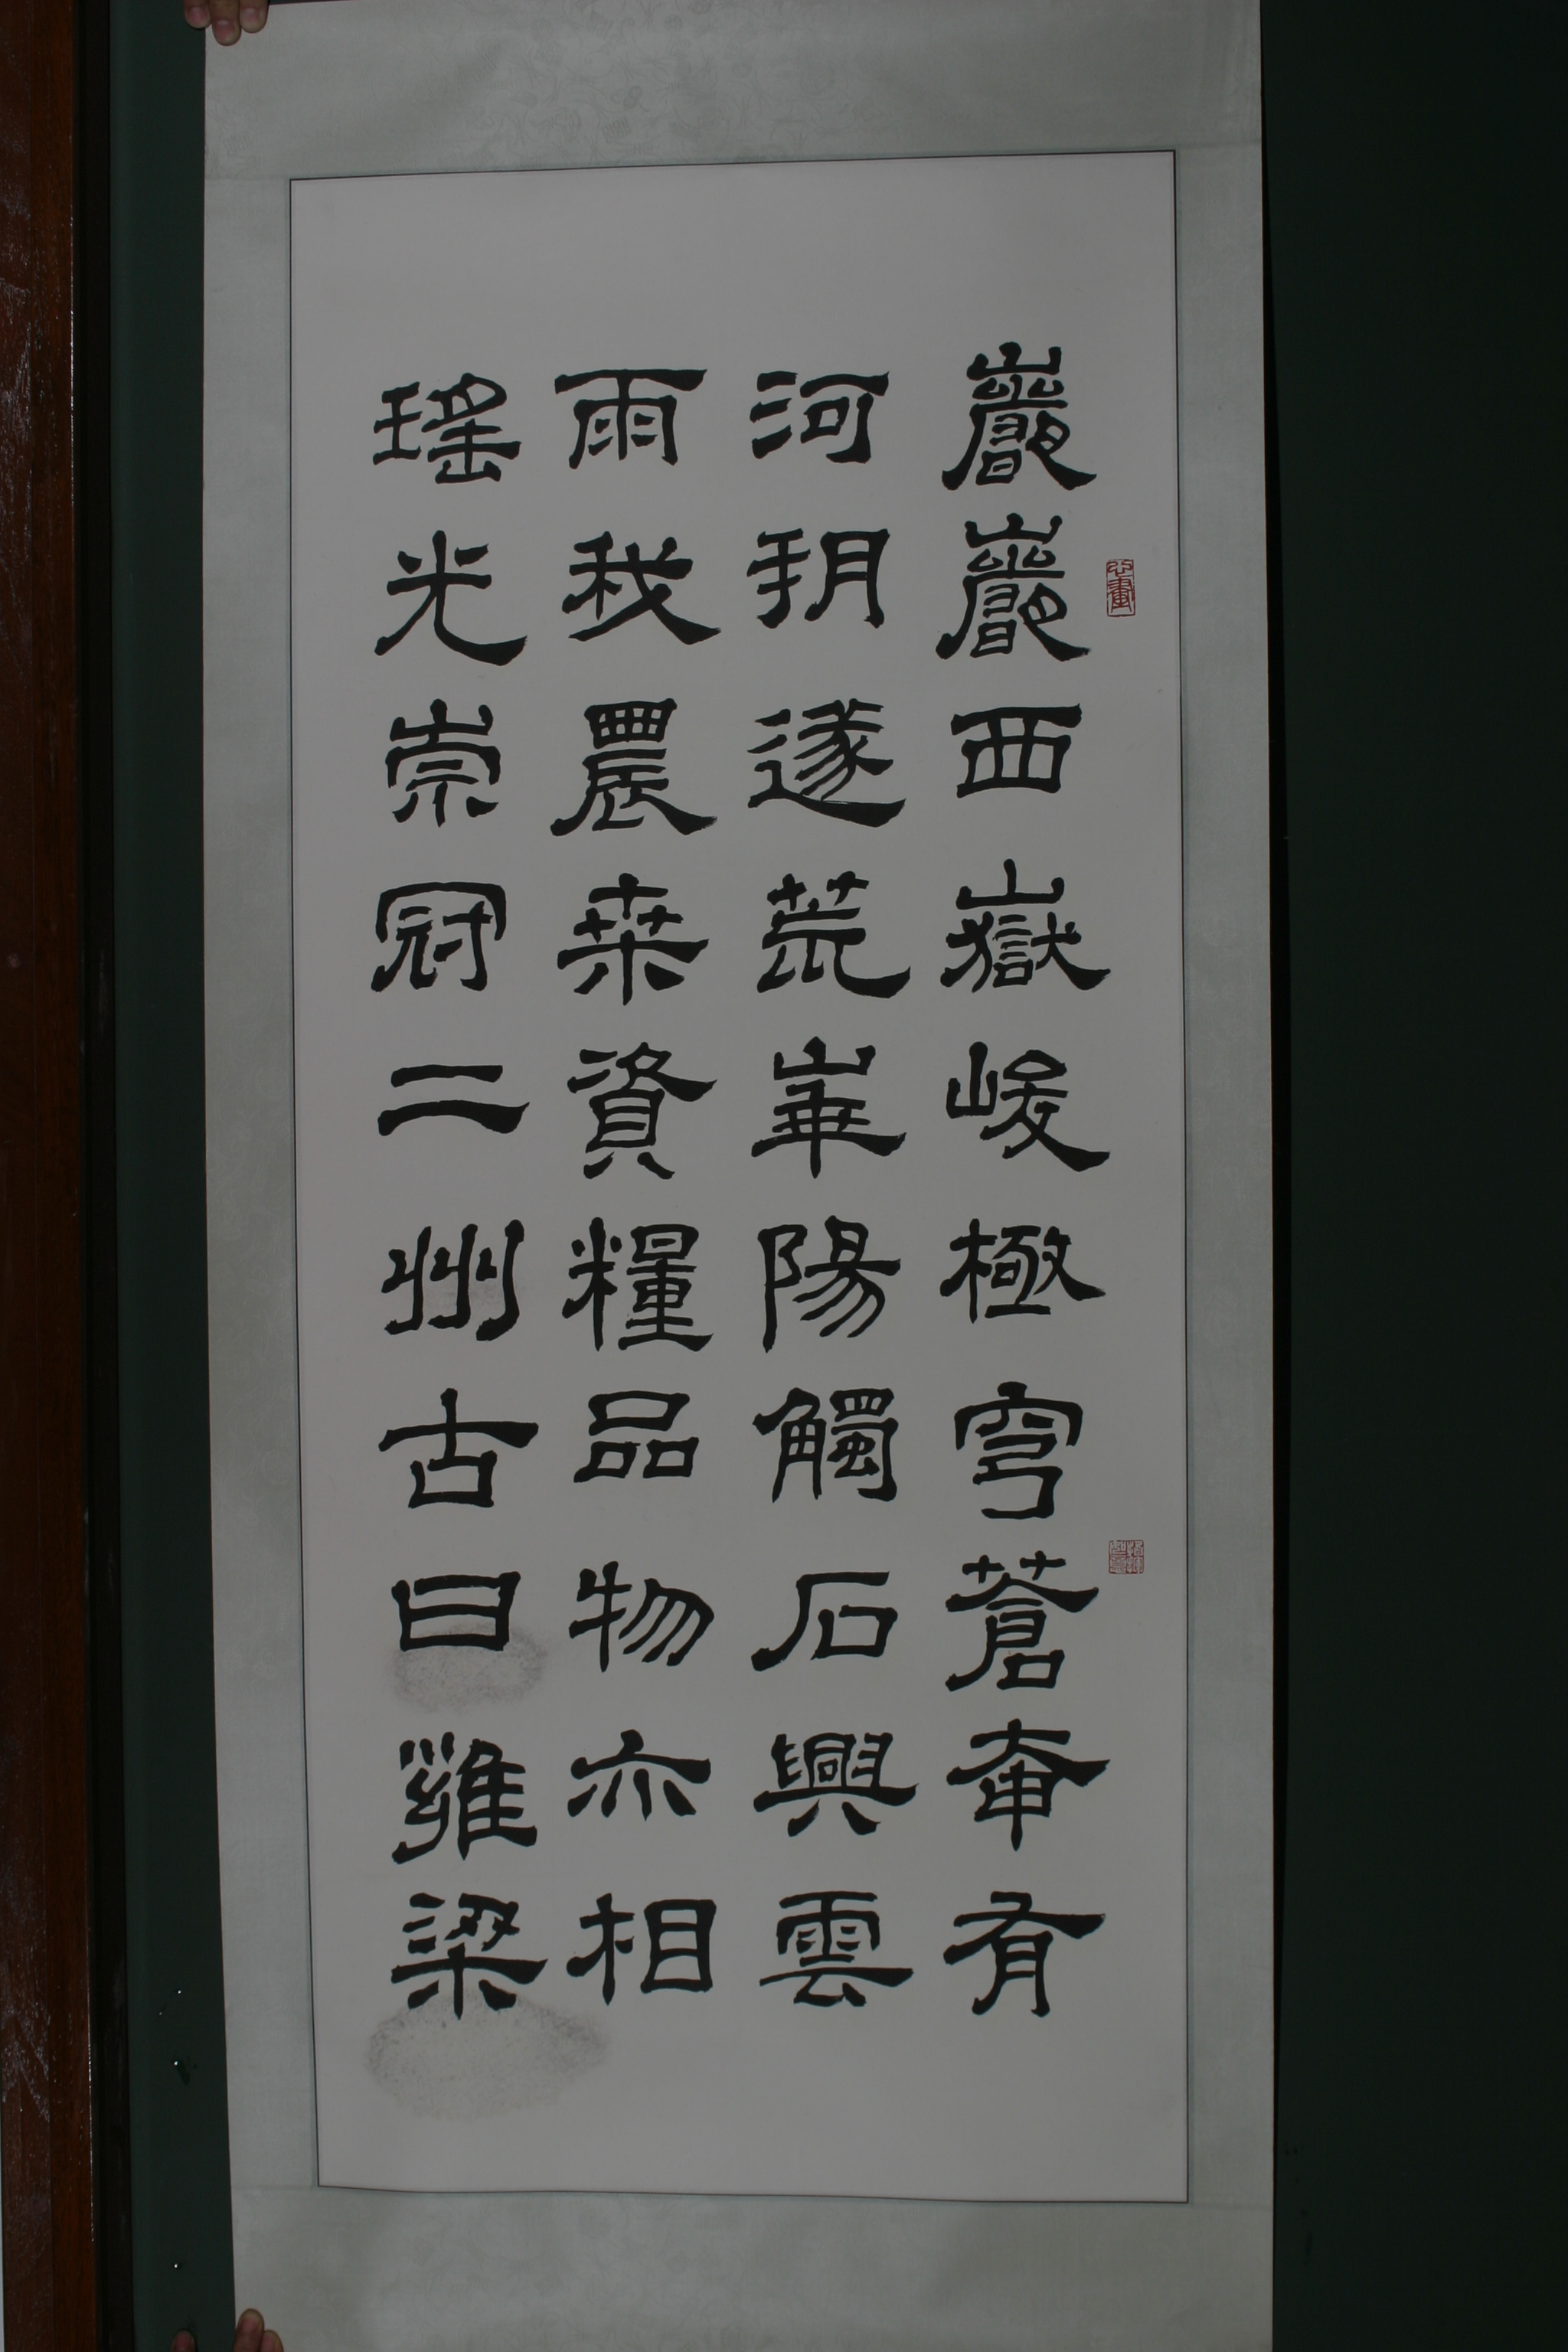 巖巖西嶽峻極穹蒼奄有
河朔遂荒崋陽觸石興雲
雨我農桒資糧品物亦相
瑤光崇冠二州古曰雍梁
心畫